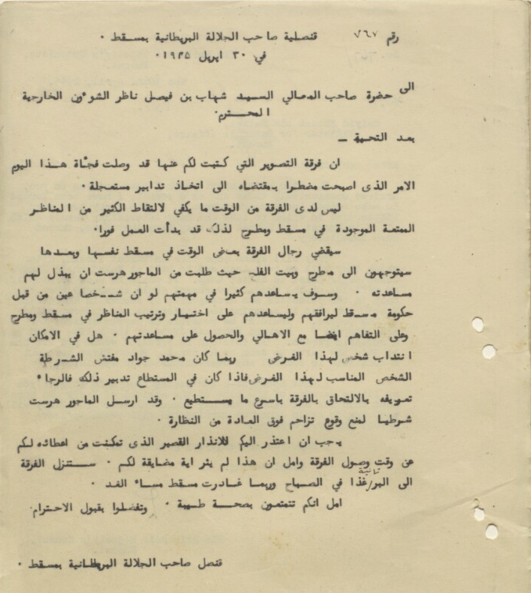 رقم ٧٦٧ قنصلية صاحب الجلالة البريطانية بمسقط ٠
في ٣٠ ابريل ١٩٤٥
الى حضرة صاحب المعالي السيد شهاب بن فيصل ناظر الشوءون الخارجية
المحترم٠
بعد التحية ــ
ان فرقة التصوير التي كتبت لكم عنها قد وصلت فجأة هذا اليوم
الامر الذى اصبحت مضطرا بمقتضاه الى اتخاذ تدابير مستعجلة ٠
ليس لدى الفرقة من الوقت ما يكفي لالتقاط الكثير من المناظر
الممتعة الموجودة في مسقط ومطرح لذلك قد بدأت العمل فورا٠
سيقضي رجال الفرقة بعض الوقت في مسقط نفسها وبعدها
سيتوجهون الى مطرح وبيت الفلج حيث طلبت من الماجور هرست ان يبذل لهم
مساعدته ٠ وسوف يساعدهم كثيرا في مهمتهم لو ان شخصا عين من قبل
حكومة مسقط ليرافقهم وليساعدهم على اختيار وترتيب المناظر في مسقط ومطرح
وعلى التفاهم ايضا مع الاهالي والحصول على مساعدتهم ٠ هل في الامكان
انتداب شخص لهذا الغرض ربما كان محمد جواد مفتش الشرطة
الشخص المناسب لهذا الغرض فاذا كان في المستطاع تدبير ذلك فالرجاء
تعريفه بالالتحاق بالفرقة باسرع ما يستطيع ٠ وقد ارسل الماجور هرست
شرطيا لمنع وقوع تزاحم فوق العادة من النظارة ٠
يجب ان اعتذر اليكم للانذار القصير الذى تمكنت من اعطائه لكم
عن وقت وصول الفرقة وامل ان هذا لم يثر اية مضايقة لكم ٠ ستنزل الفرقة
الى البر ثانية غدا في الصباح وربما غادرت مسقط مساء الغد ٠
امل انكم تتمتعون بصحة طيبة ٠ وتفضلوا بقبول الاحترام٠
قنصل صاحب الجلالة البريطانية بمسقط ٠